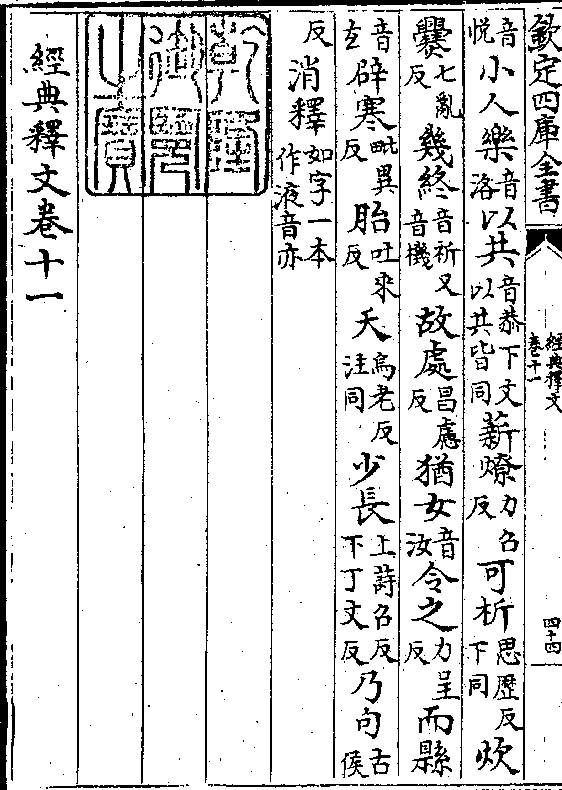 欽定四庫全書
經典釋文
卷十一
四十四
音悅小人樂音洛以共音恭下文以共皆同薪燎力召反可析思歷反下同炊
爨七亂反幾終音祈又音機故處昌慮反猶女音汝令之力呈反而縣
音玄辟寒毗異反胎吐來反夭烏老反注同少長上詩召反下丁丈反乃句古侯
反消釋如字一本作液音亦
乾隆御覽之寶
經典釋文卷十一